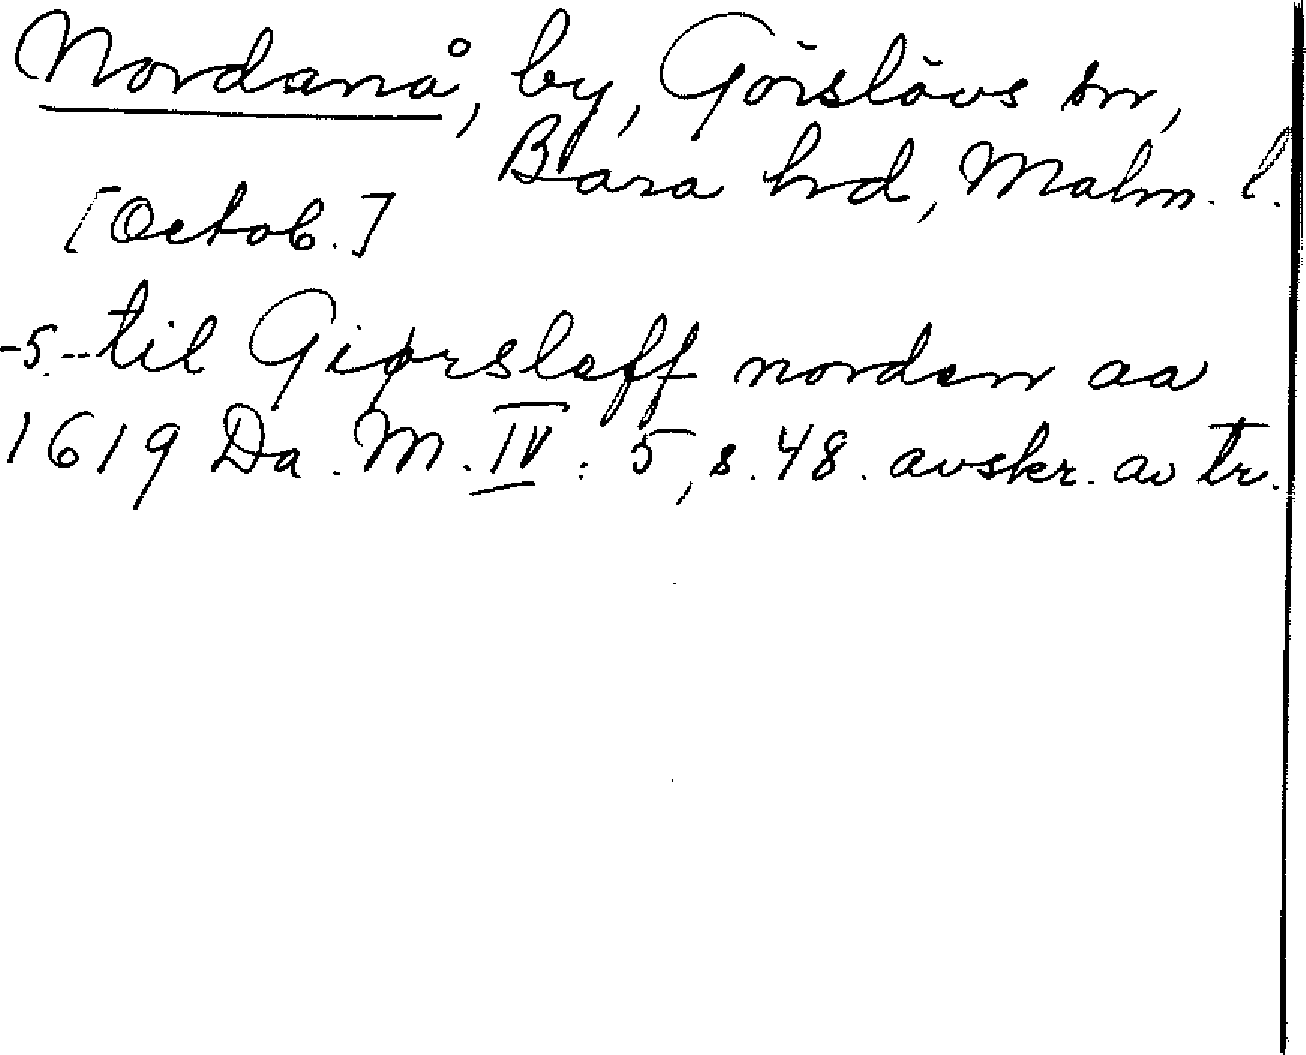 Nordanå, by, Görslövs sn,
Bara hrd, Malm. l.
[Octob.]
-5.--til Giørsleff norden aa
1619 Da. M. IV : 5, s. 48. avskr. av tr.